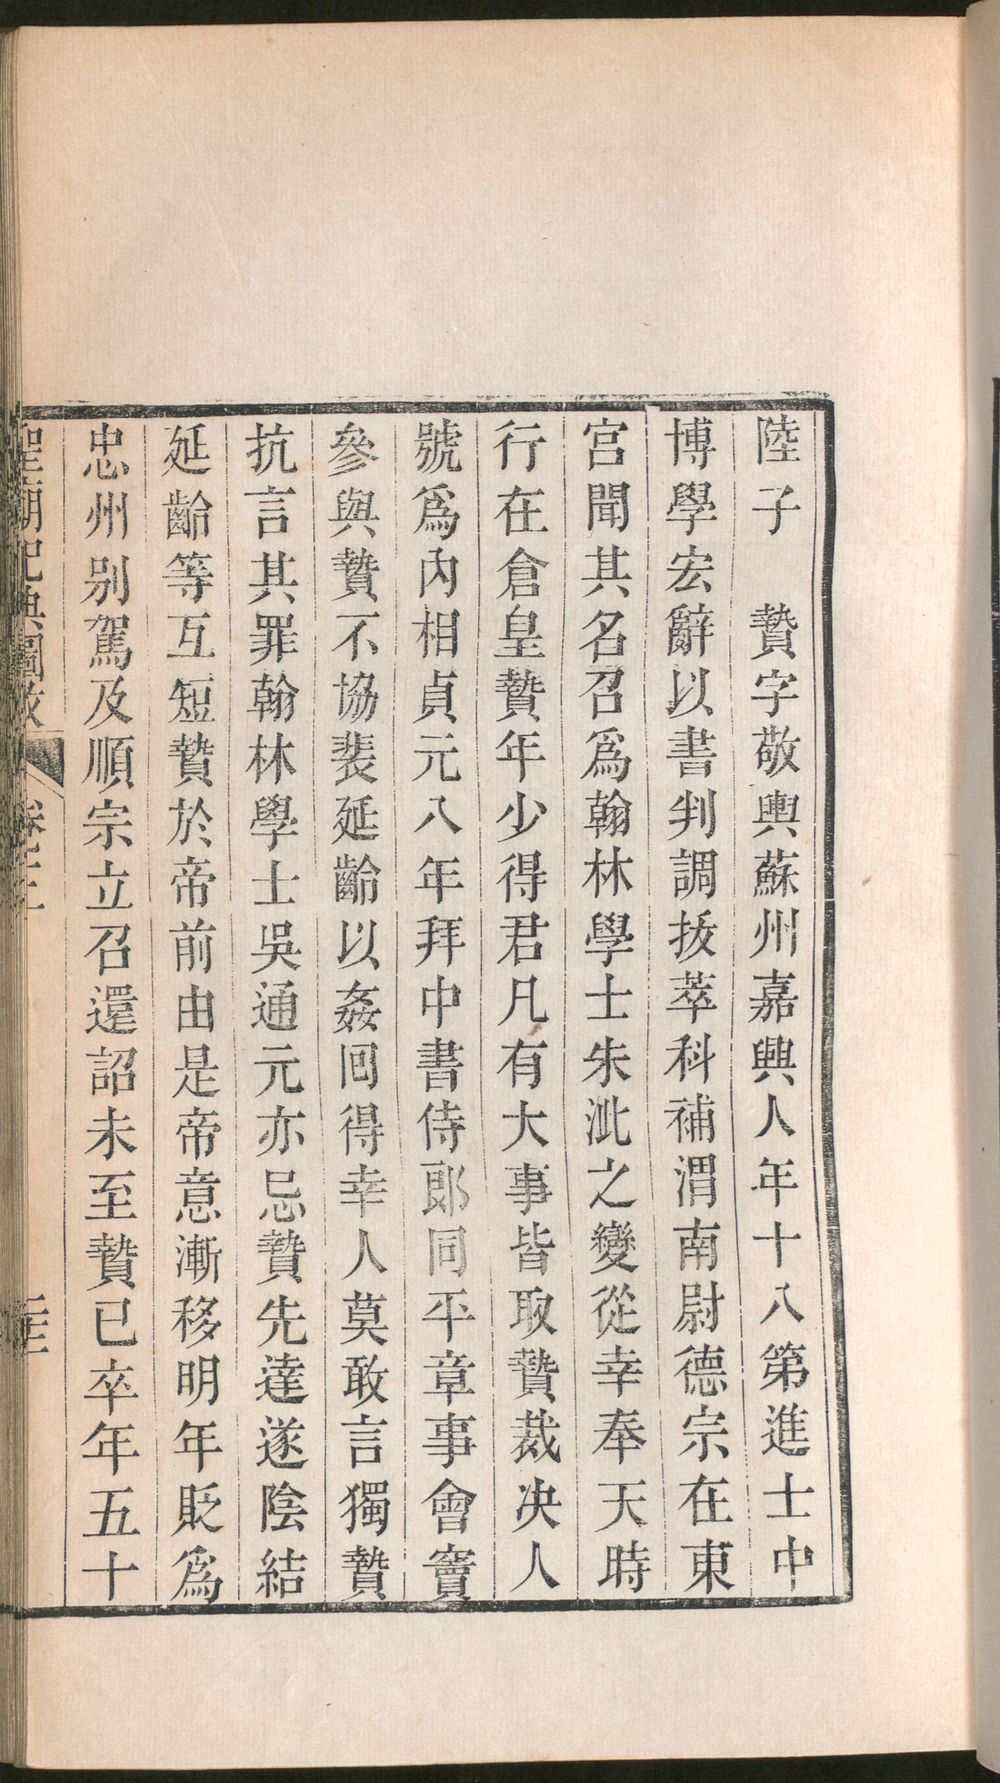 陸子　贄字敬輿蘇州嘉興人年十八第進士中
博學宏辭以書判調拔萃科補渭南尉德宗在東
宮聞其名召爲翰林學士朱泚之變從幸奉天時
行在倉皇贄年少得君凡有大事皆取贄裁決人
號爲內相貞元八年拜中書侍郞同平章事會竇
參與贄不協裴延齡以姦囘得幸人莫敢言獨贄
抗言其罪翰林學士吳通元亦忌贄先達遂陰結
延齡等互短贄於帝前由是帝意漸移明年貶爲
忠州别駕及順宗立召還詔未至贄已卒年五十
聖廟祀典圖攷　卷三